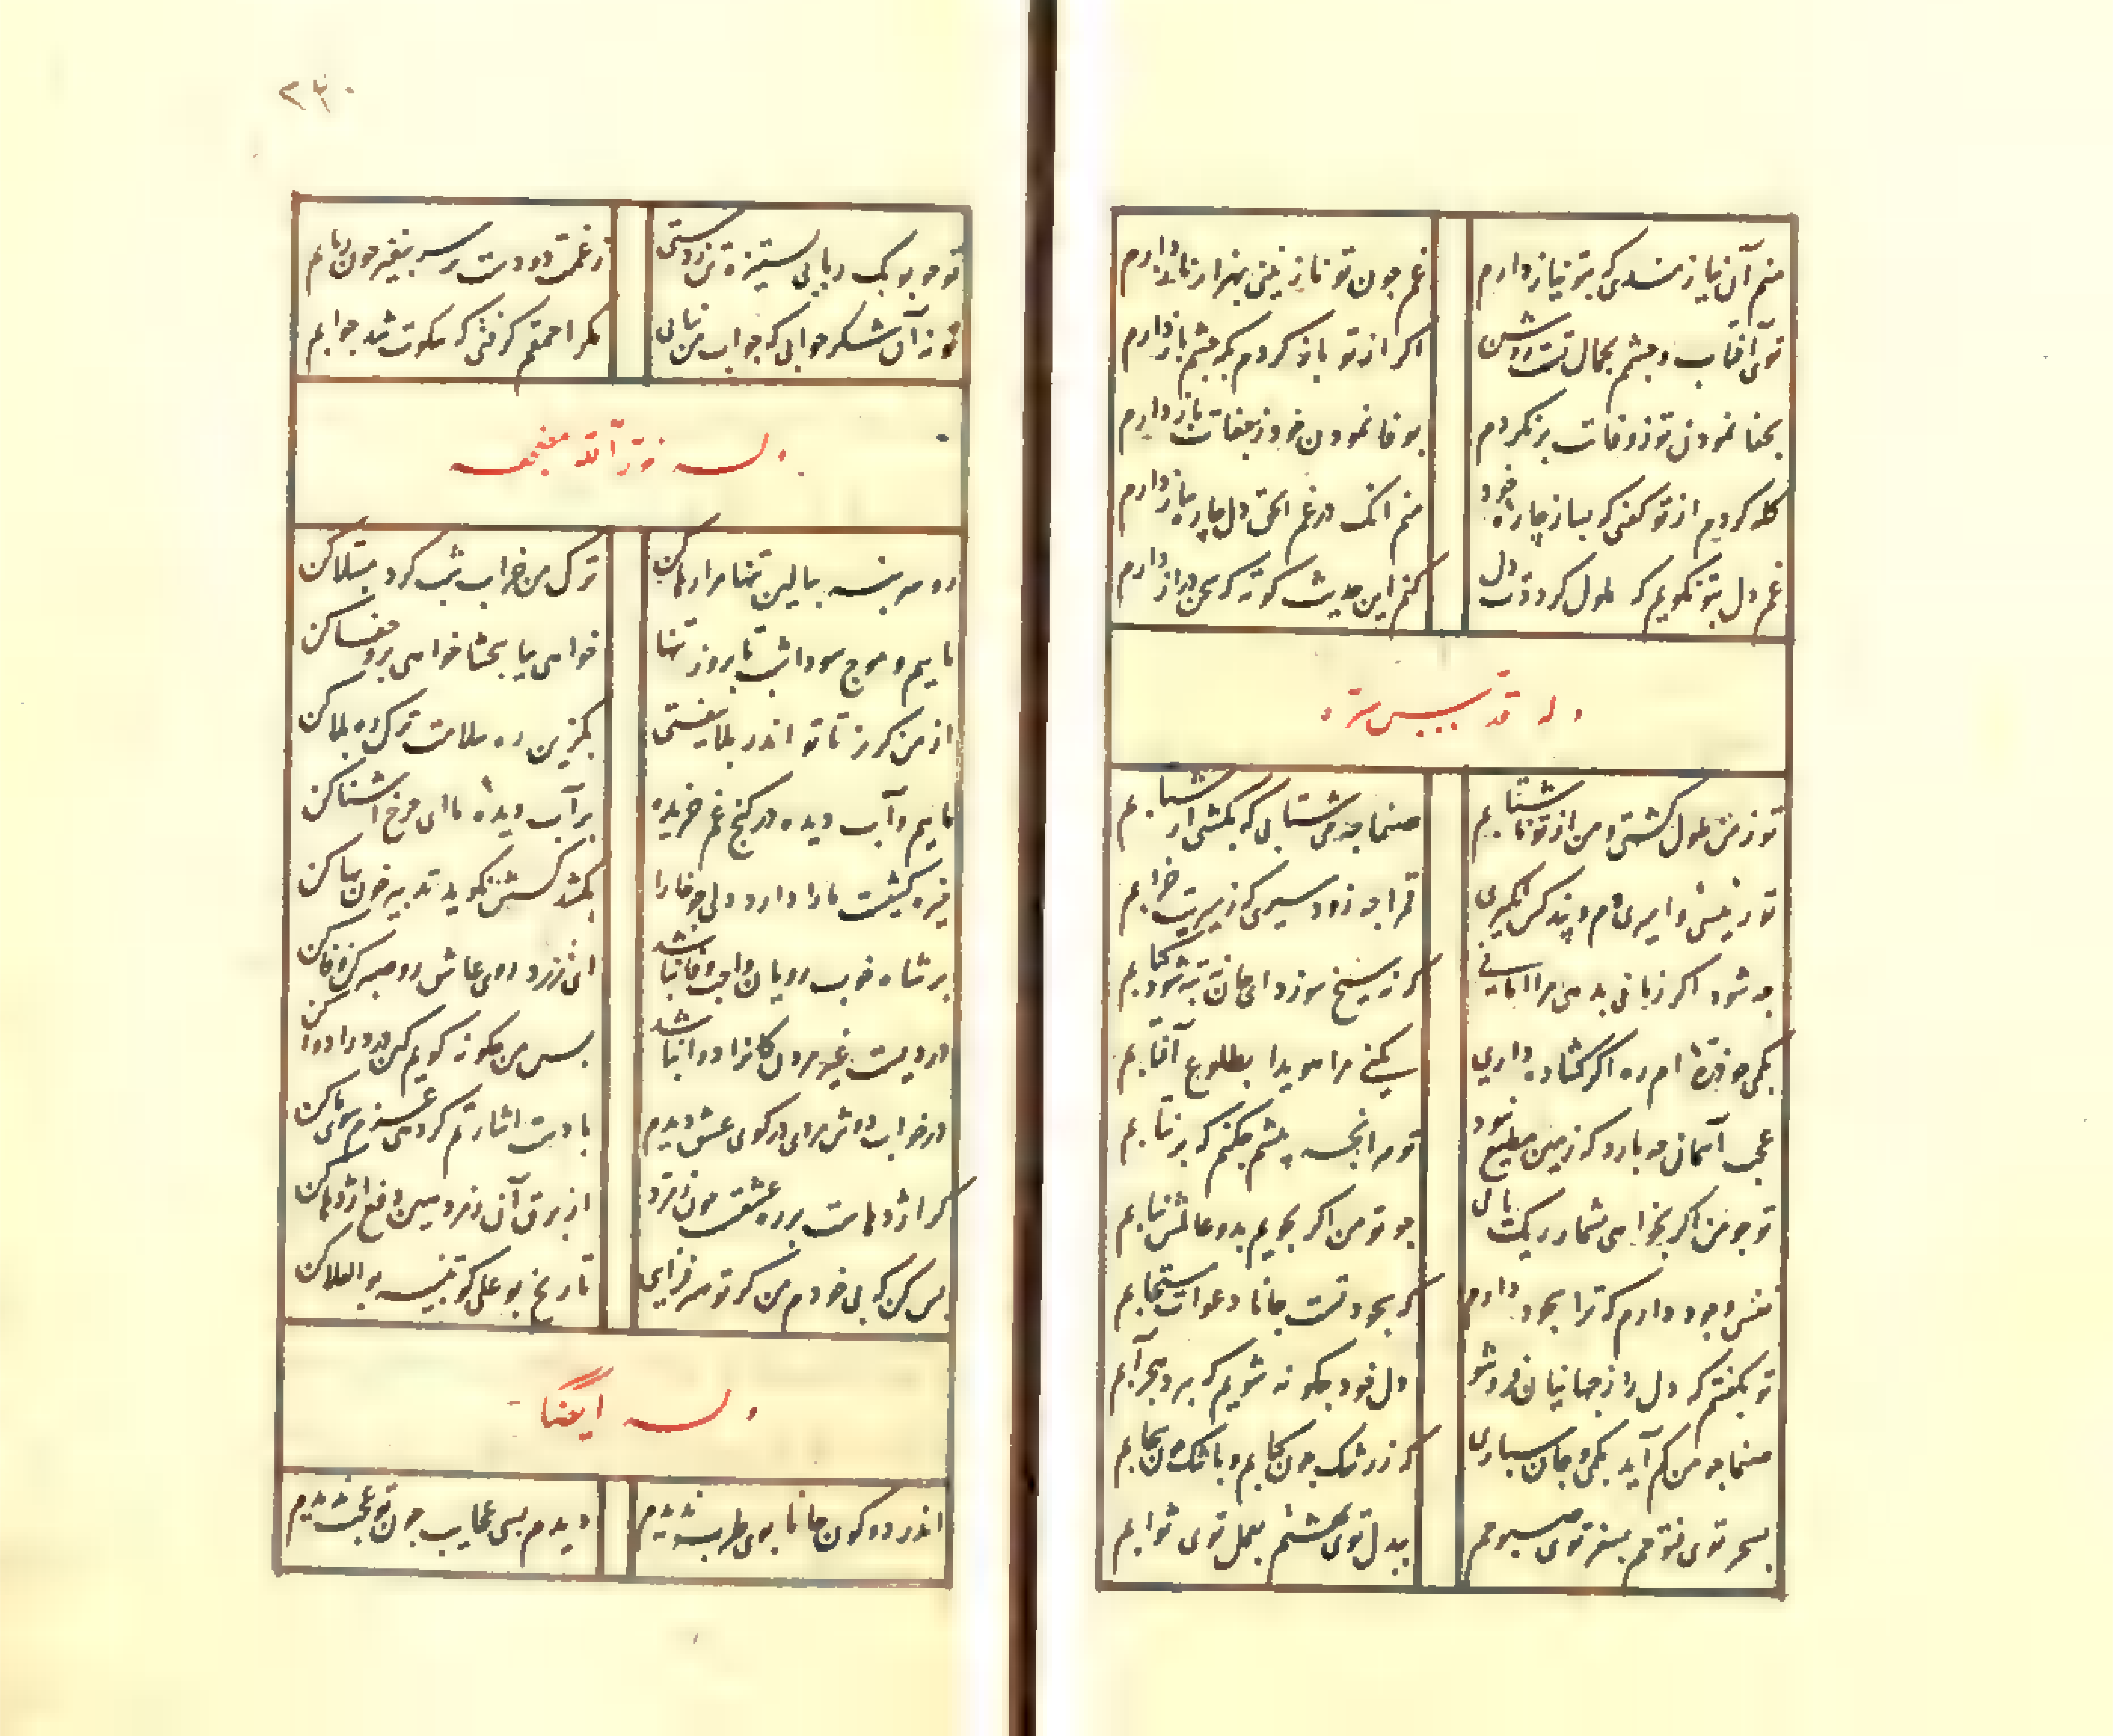 منم آن نیازمندی که بتو نیاز دارم    غم چون تو نازنینی بهزار ناز دارم
توی آفتاب و چشمم بجمال تست روشن    اگر از تو باز کردم بکه چشم باز دارم
بجفا نمودن تو ز وفات برنکردم    بوفا نمودن خود ز جفات باز دارم
کله کردم از تو کفتی که بساز چاره خود    منم انک در غم الحق دل چاره ساز دارم
غم دل بتو نکویم که ملول کردد دل    کنم این حدیث کوته که سخن دراز دارم
وله قدس سره
تو ز من ملول کشتی و من از تو ناشتابم    صنما چه می شتابی که بکشتی از شتابم
چه شود اگر زمانی بدهی مرا امانی    که نه سیخ سوزد ای جان نه تبه شود کبابم
بکی خوانده ام ره اگر گشاده داری    مرا هویدا بطلوع آفتابم
عجب آسمان چه بارد که زمین مطیع نبود    تو هر آنچه پیشم چکنم که برنتابم
تو چو من اگر بخواهی شمار ریکت یابی    چو تو من اگر بجویم بدو عالمش نیابم
منش وجود دارم که ترا بجود دارم    که بجود تست جانا دعوات مستجابم
تو بکفتم که دل را ز جهانیان فرو شو    دل خود چکونه شویم که برد بحر آبم
صنما چو من کم آید بکی و جان سپاری    که ز رشک چون کبابم و باشک چون سحابم
بسحر توی فتوحم بسفر توی صبوحم    ببدل توی بهشتم بعمل توی ثوابم
۲۴۰
تو چو بوبک ربابی    ز غمت دو دست بر سر
مکر احمقم کرفتی که سکوت شد جوابم
وله نور الله مضجعه
رو سر بنه ببالین تنها مرا رها کن    ترک من خراب شب کرد مبتلا کن
ماییم و موج سودا شب تا بروز تنها    خواهی بیا ببخشا خواهی برو جفا کن
از من کریز تا تو اندر بلا نیفتی    بکزین ره سلامت ترک ره بلا کن
ماییم و آب دیده در کنج غم خزیده    بر آب دیده ما
خیره کشیست ما را دارد دلی چو خارا    بکشد کسش نکوید تدبیر خون بها کن
بر شاه خوب رویان واجب وفا نباشد    ای زرد روی عاشق رو صبر کن وفا کن
دردیست غیر مردن کانرا دوا نباشد    پس من چکونه کویم کین درد را دوا کن
در خواب دوش مردی در کوی عشق دیدم    با دست اشارتم کرد که عزم سوی ما کن
کر اژدهاست بر ره عشقست چون زمرد    از برق آن زمرد هین دفع اژدها کن
بس کن که بی خودم من کر تو هنر فزایی    تاریخ بوعلی کو تنبیه بوالعلا کن
وله ایضا
اندر دو کون جانا بی تو طرب ندیدم    دیدم بسی عجایب چون تو عجب ندیدم